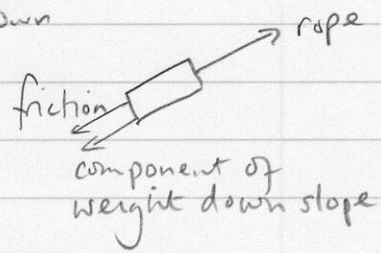 own
rope
friction
component of
weight down slope